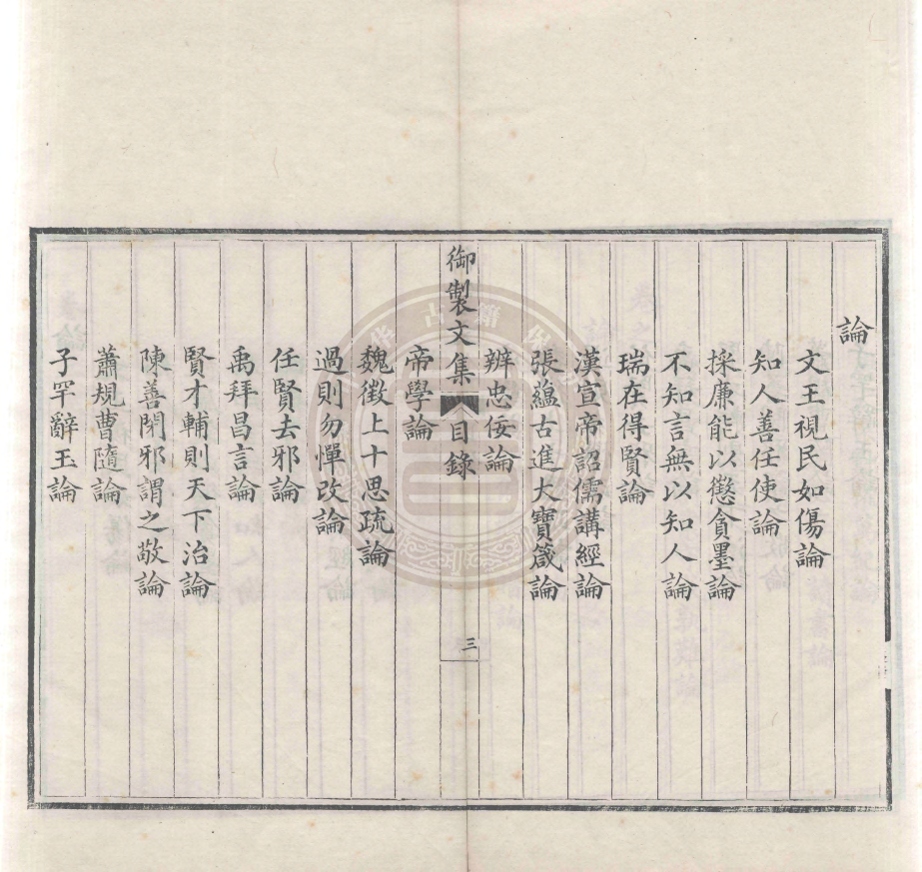 論
文王視民如傷論
知人善任使論
採廉能以懲貪墨論
不知言無以知人論
瑞在得賢論
漢宣帝詔儒講經論
張蘊古進大寶箴論
辨忠佞論
御製文集 目錄 三
帝學論
魏徵上十思疏論
過則勿憚改論
任賢去邪論
禹拜昌言論
賢才輔則天下治論
陳善閉邪謂之敬論
蕭規曹隨論
子罕辭玉論